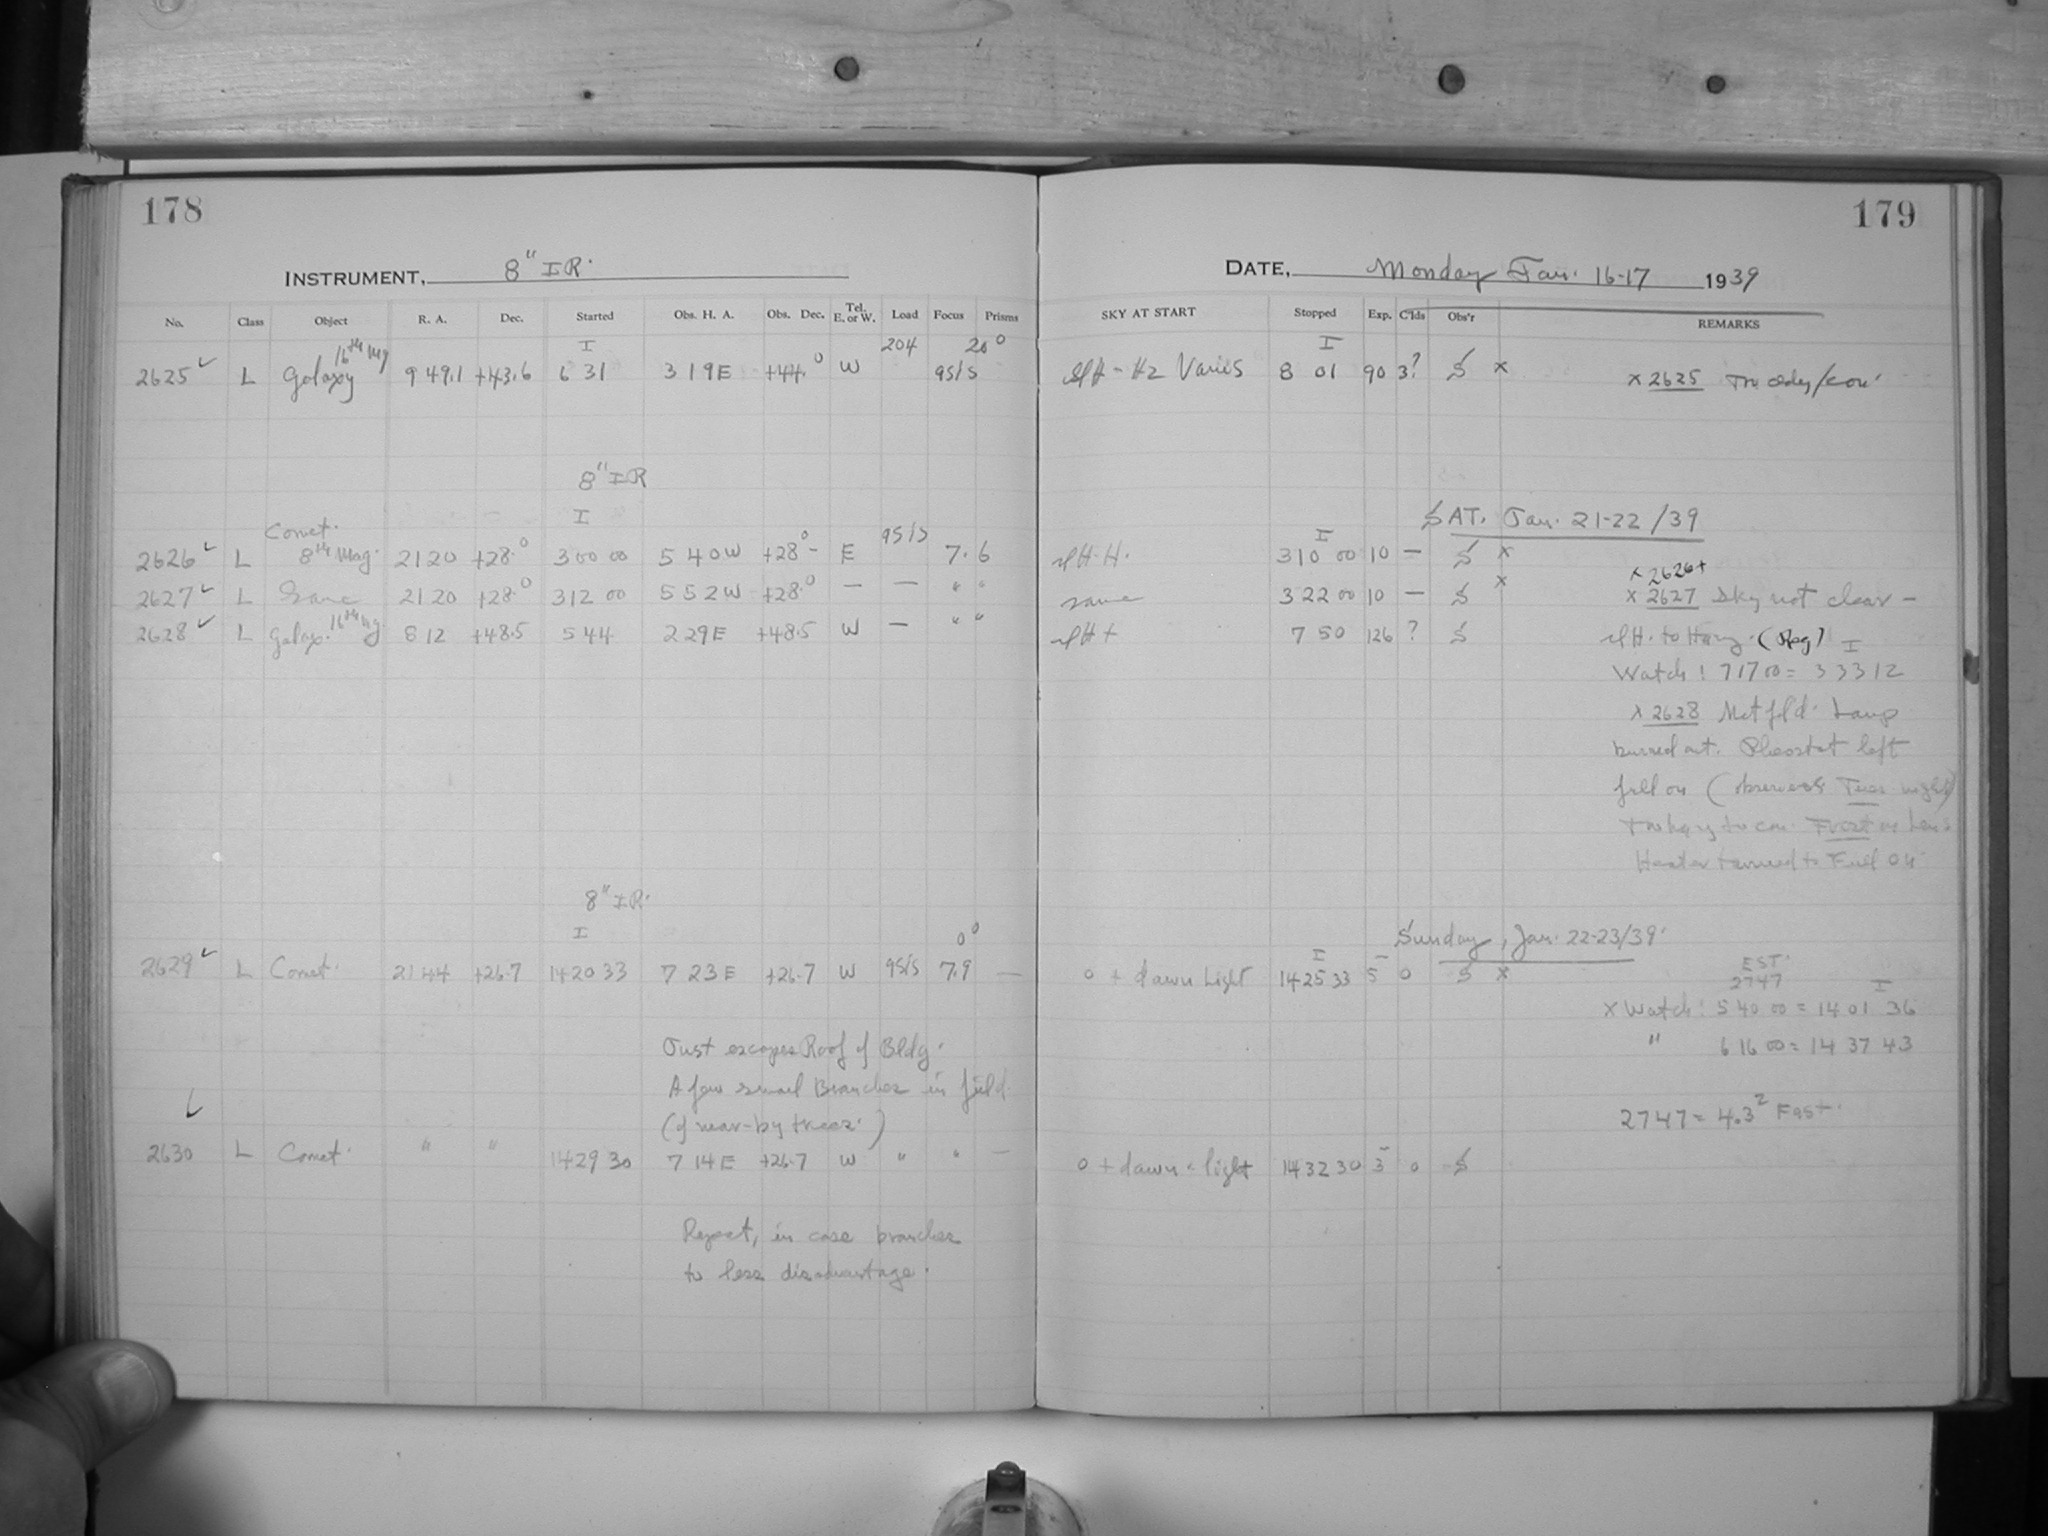 178
INSTRUMENT, 8" IR.
No. Class Object R. A. Dec. Started Obs. H. A. Obs. Dec. Tel. E. or W. Load Focus Prisms
I 204 20°
16th Mg
2625 L Galaxy 9 49.1 +43.6 6 31 3 19 E +44.° W 95/5
8" IR
I
Comet. 95/5
2626 L 8th Mag. 21 20 +28.° 3 00 00 5 40 W +28° - E 7.6
2627 L Same 21 20 +28.° 3 12 00 5 52 W +28.° — — " "
2628 L Galax. 16th Mg. 8 12 +48.5 5 44 2 29 E +48.5 W — " "
8" IR.
I 0°
2629 L Comet. 21 44 +26.7 14 20 33 7 23 E +26.7 W 95/5 7.9 —
Just escapes Roof of Bldg.
A few small Branches in field.
(of near-by trees.)
2630 L Comet. " " 14 29 30 7 14 E +26.7 W " " —
Repeat, in case branches
to less disadvantage.
179
DATE, Monday Jan. 16-17 1939
SKY AT START Stopped Exp. C'lds Obs'r REMARKS
I
H2 Varies 8 01 90 3? S x x 2625
SAT. Jan. 21-22/39
I
3 10 00 10 — S x
x 2626+
same 3 22 00 10 — S x x 2627 Sky not clear —
7 50 126 ? S
Watch: 7 17 00 = 3 33 12
x 2628 Lamp
burned out. Rheostat left
full on (observers Tues night)
Frost on Lens
Heater turned to Full On.
Sunday, Jan. 22-23/39.
I EST.
0 + dawn Light 14 25 33 5 0 S x 2747 I
x Watch: 5 40 00 = 14 01 36
" 6 16 00 = 14 37 43
2747 = 4.3² Fast.
0 + dawn - light 14 32 30 3 0 S